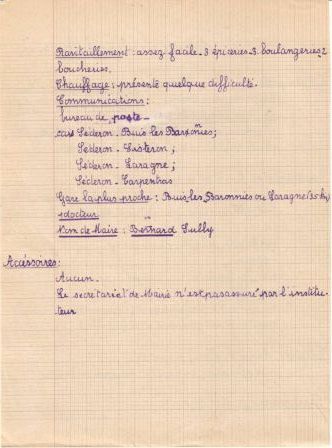 Ravitaillement : assez facile - 3 épiceries - 3 boulangeries, 2
boucheries.
Chauffage : présente quelque difficulté.
Communications :
bureau de poste -
cars Séderon - Buis les Baronnies ;
Séderon - Sisteron ;
Séderon - Laragne ;
Séderon - Carpentras
Gare la plus proche : Buis les Baronnies ou Laragne (35 km)
1 docteur
Nom de Maire : Bernard Sully
Accéssoires :
Aucun.
Le secrétariat de Mairie n'est pas assuré par l'institu-
teur